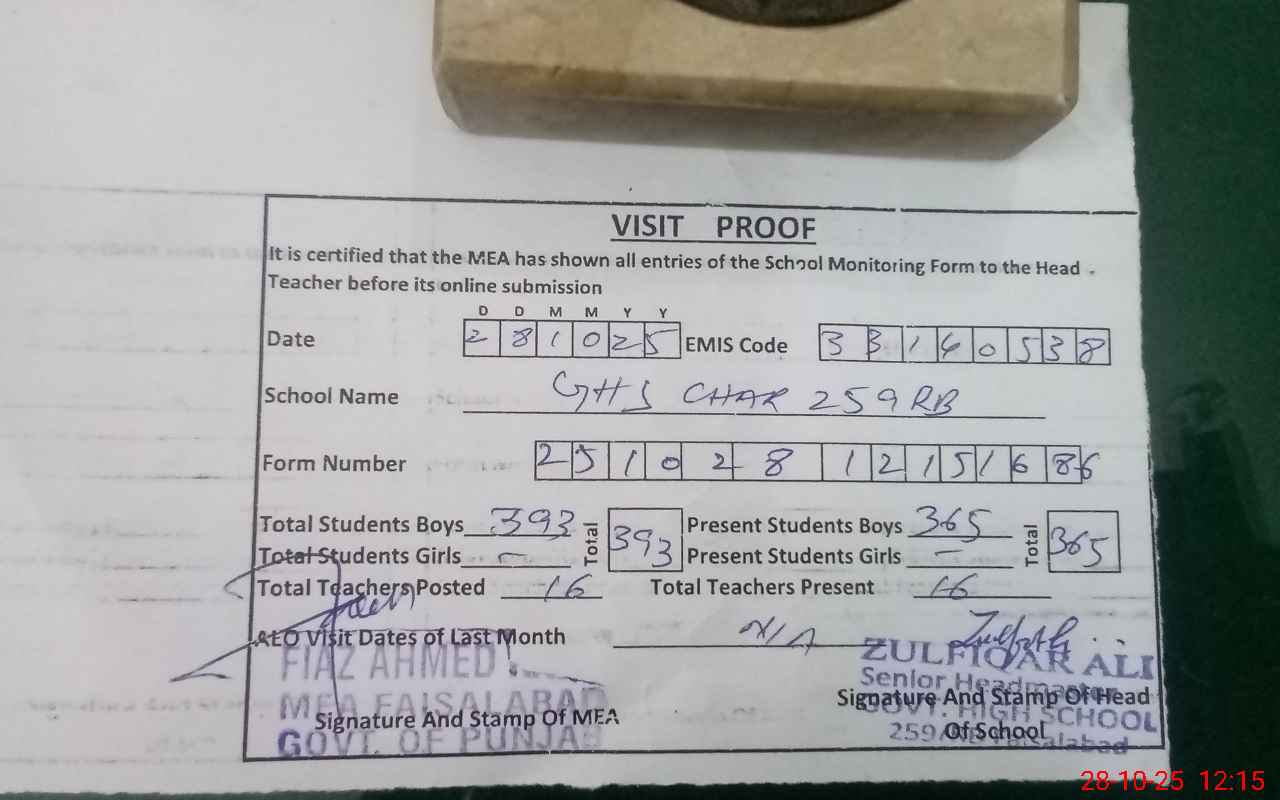 VISIT PROOF
It is certified that the MEA has shown all entries of the School Monitoring Form to the Head
Teacher before its online submission
D D M M Y Y
Date 2 8 1 0 2 5 EMIS Code 3 3 1 6 0 5 3 8
School Name GHS CHAK 259 RB
Form Number 2 5 1 0 2 8 1 2 1 5 1 6 8 6
Total Students Boys 393 Total 393 Present Students Boys 365 Total 365
Total Students Girls - Present Students Girls -
Total Teachers Posted 16 Total Teachers Present 16
AEO Visit Dates of Last Month N/A
FIAZ AHMED
MEA FAISALABAD
GOVT. OF PUNJAB
Signature And Stamp Of MEA
ZULFIQAR ALI
Senior Headmaster
GOVT. HIGH SCHOOL
259/RB Faisalabad
Signature And Stamp Of Head
Of School
28-10-25 12:15